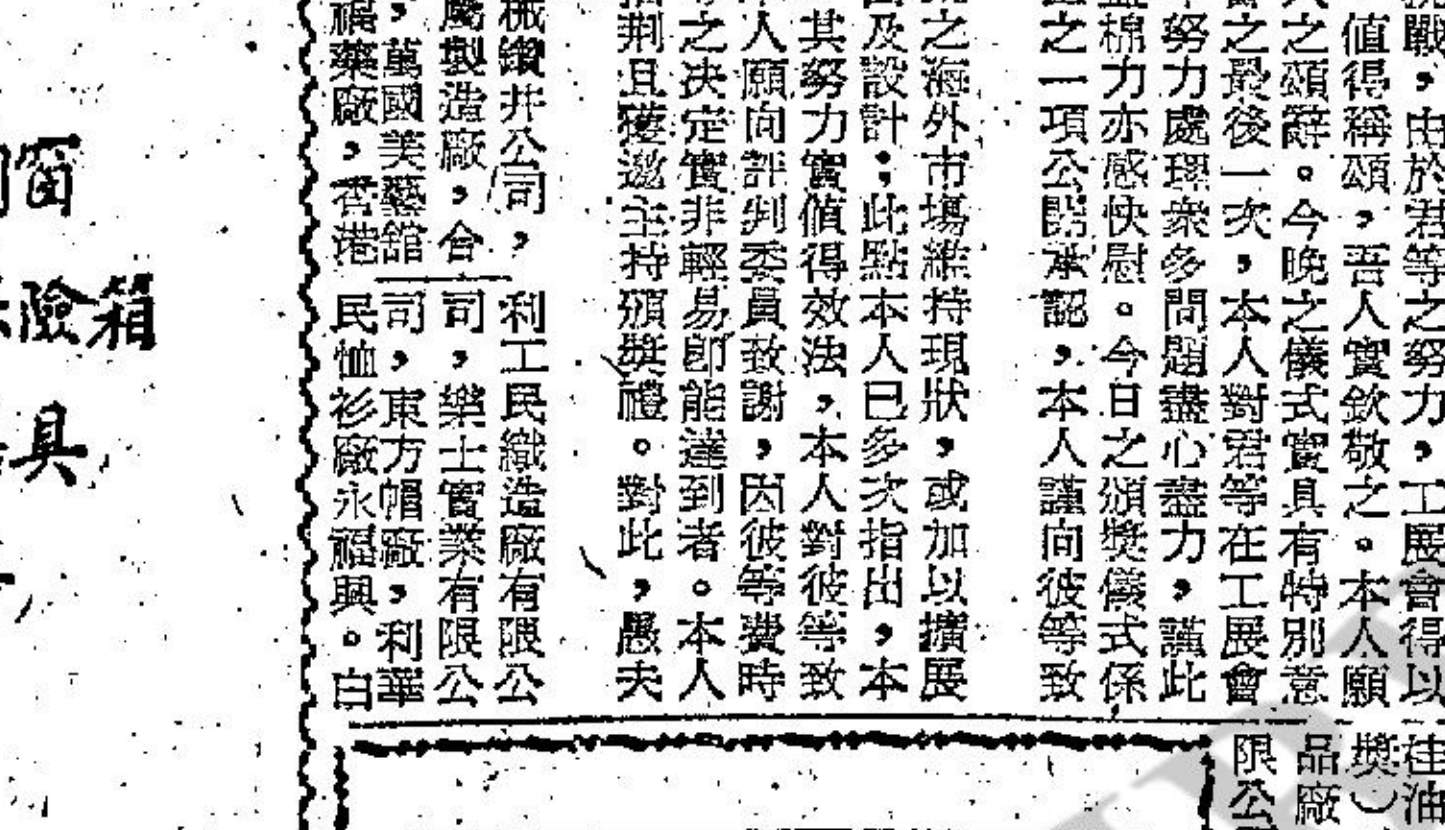 戰，由於君等之努力，工展會得以
值得稱頌，吾人實欽敬之。本人願
之頌辭。今晚之儀式實具有特別意
之最後一次，本人對君等在工展會
努力處理衆多問題盡心盡力，謹此
棉力亦感快慰。今日之頒獎儀式係
之一項公開承認，本人謹向彼等致
之海外市場維持現狀，或加以擴展
及設計；此點本人已多次指出，本
其努力實值得效法，本人對彼等致
人願向評判委員致謝，因彼等費時
之决定實非輕易卽能達到者。本人
荆且獲邀主持頒獎禮。對此，愚夫
械鑽井公司，
製造廠，合
，萬國美藝館
藥廠，香港
利工民織造廠有限公
司，樂士實業有限公
司，東方帽廠，利華
民恤衫廠永福興。白
油
獎）
品廠
限公
窗
險箱
具